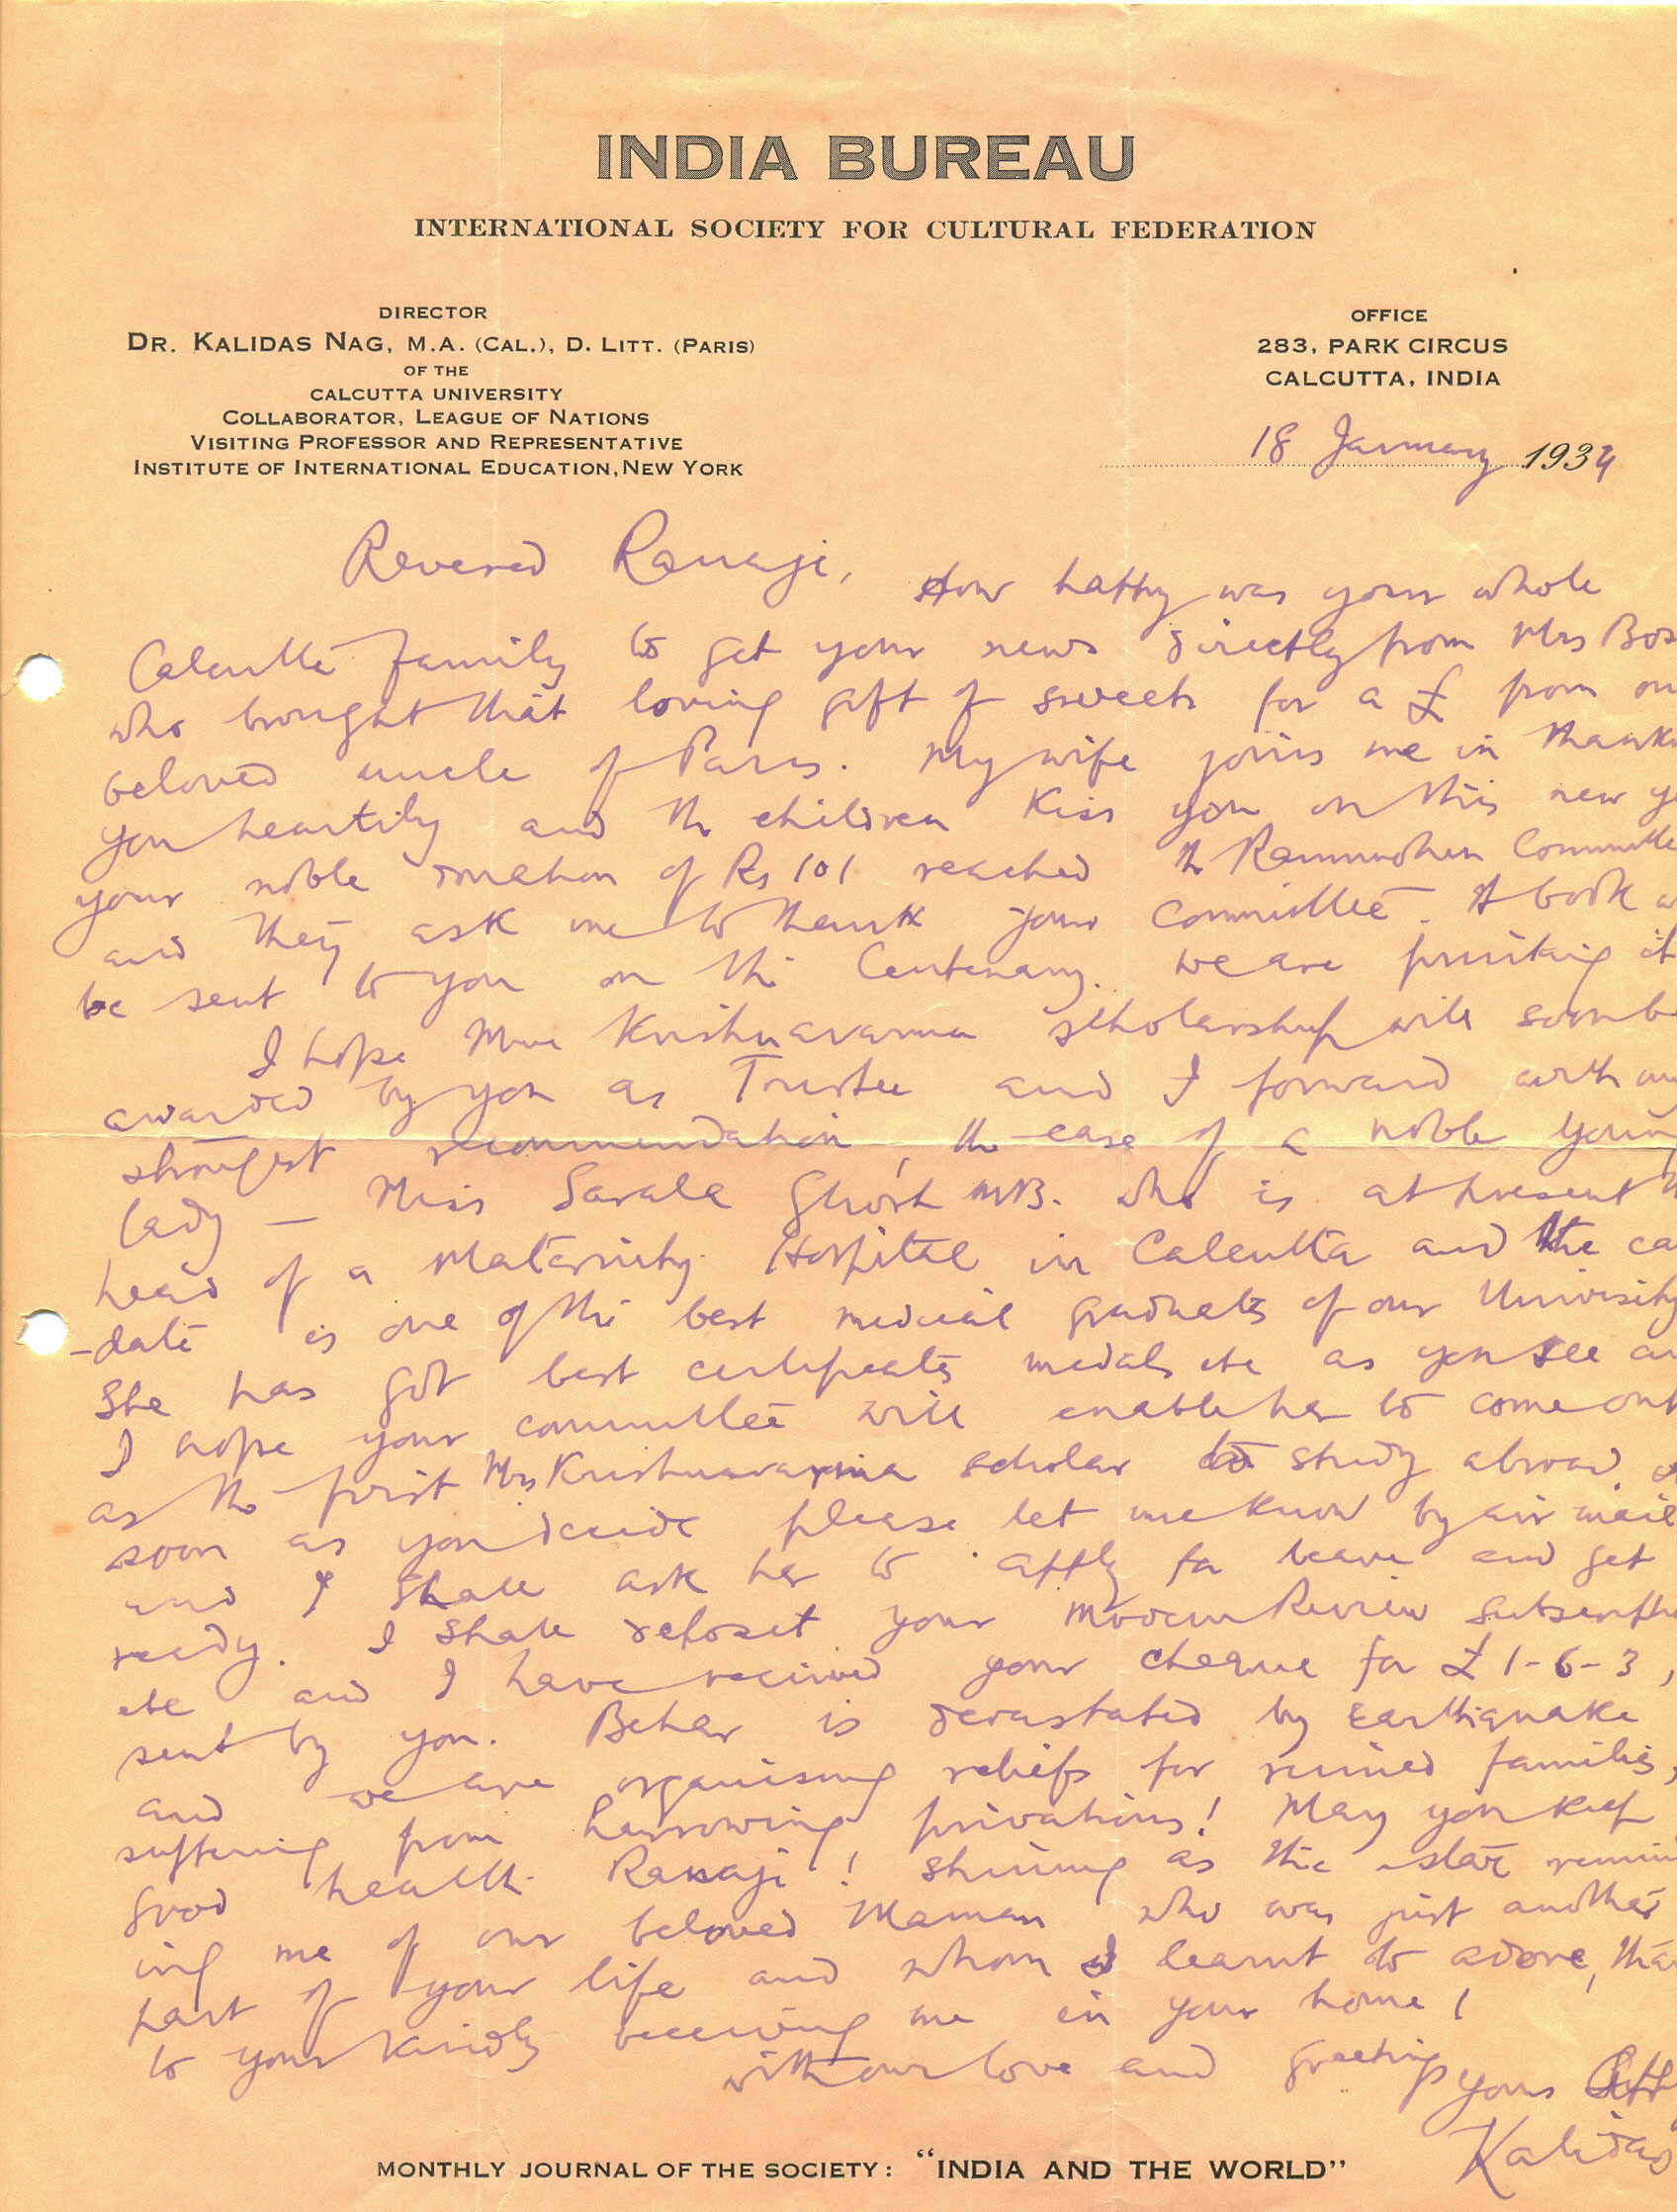 INDIA BUREAU
INTERNATIONAL SOCIETY FOR CULTURAL FEDERATION
DIRECTOR
DR. KALIDAS NAG, M.A. (CAL.), D. LITT. (PARIS)
OF THE
CALCUTTA UNIVERSITY
COLLABORATOR, LEAGUE OF NATIONS
VISITING PROFESSOR AND REPRESENTATIVE
INSTITUTE OF INTERNATIONAL EDUCATION, NEW YORK
OFFICE
283, PARK CIRCUS
CALCUTTA, INDIA
18 January 1934
Revered Ranaji, How happy was your whole
Calcutta family to get your news directly from Mrs Bos
who brought that loving gift of sweets for a £ from ou
beloved uncle of Paris. My wife joins me in thank
you heartily and the children kiss you on this new ye
your noble donation of Rs 101 reached the Rammohun Committee
and they ask me to thank your committee. A book w
be sent to you on the Centenary. We are printing it
I hope Mme Krishnavarma scholarship will soon be
awarded by you as Trustee and I forward with my
strongest recommendation, the case of a noble youn
lady — Miss Sarala Ghosh MB. who is at present th
head of a Maternity Hospital in Calcutta and the ca
-date is one of the best medical graduates of our University
She has got best certificates medals etc as you see an
I hope your committee will enable her to come out
as the first Mrs Krishnavarma scholar to study abroad. As
soon as you decide please let me know by air mail
and I shall ask her to apply for leave and get
ready. I shall deposit your Modern Review subscriptio
etc and I have received your cheque for £ 1-6-3,
sent by you. Behar is devastated by Earthquake
and we are organising reliefs for ruined families,
suffering from harrowing privations! May you keep
good health Ranaji! shining as the star remin
ing me of our beloved Maman who was just another
part of your life and whom I learnt to adore, than
to your kindly receiving me in your home!
with our love and greetings
yours Aff
Kalidas
MONTHLY JOURNAL OF THE SOCIETY: "INDIA AND THE WORLD"